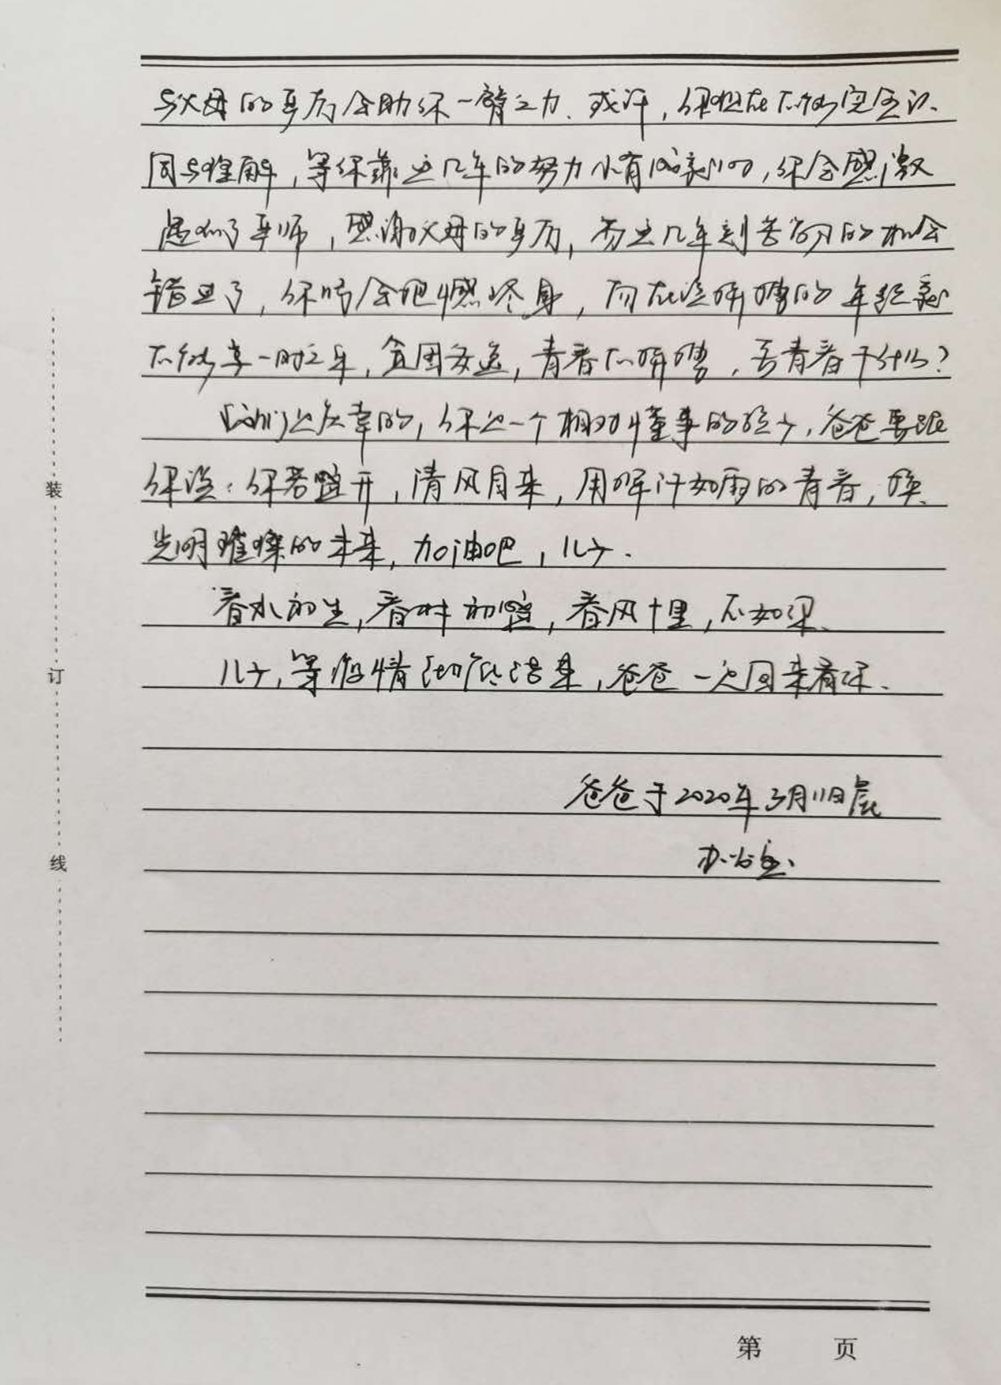 与父母的严厉会助你一臂之力、或许,你现在不能完全认
同与理解,等你靠这几年的努力小有成就时,你会感激
遇到了严师,感谢父母的严厉,若这几年刻苦学习的机会
错过了,你将会犯憾终身,而在该拼搏的年纪
不能享一时之乐,贪图安逸,青春不拼搏,要青春干什么?
我们是庆幸的,你是一个相对懂事的孩子,爸爸要跟
你说:你若盛开,清风自来,用挥汗如雨的青春,换
光明璀璨的未来,加油吧,儿子.
春水初生,春林初盛,春风十里,不如你、
儿子,等疫情彻底结束,爸爸一定回来看你.
爸爸于2020年3月11日晨
办公室.
装
订
线
第 页